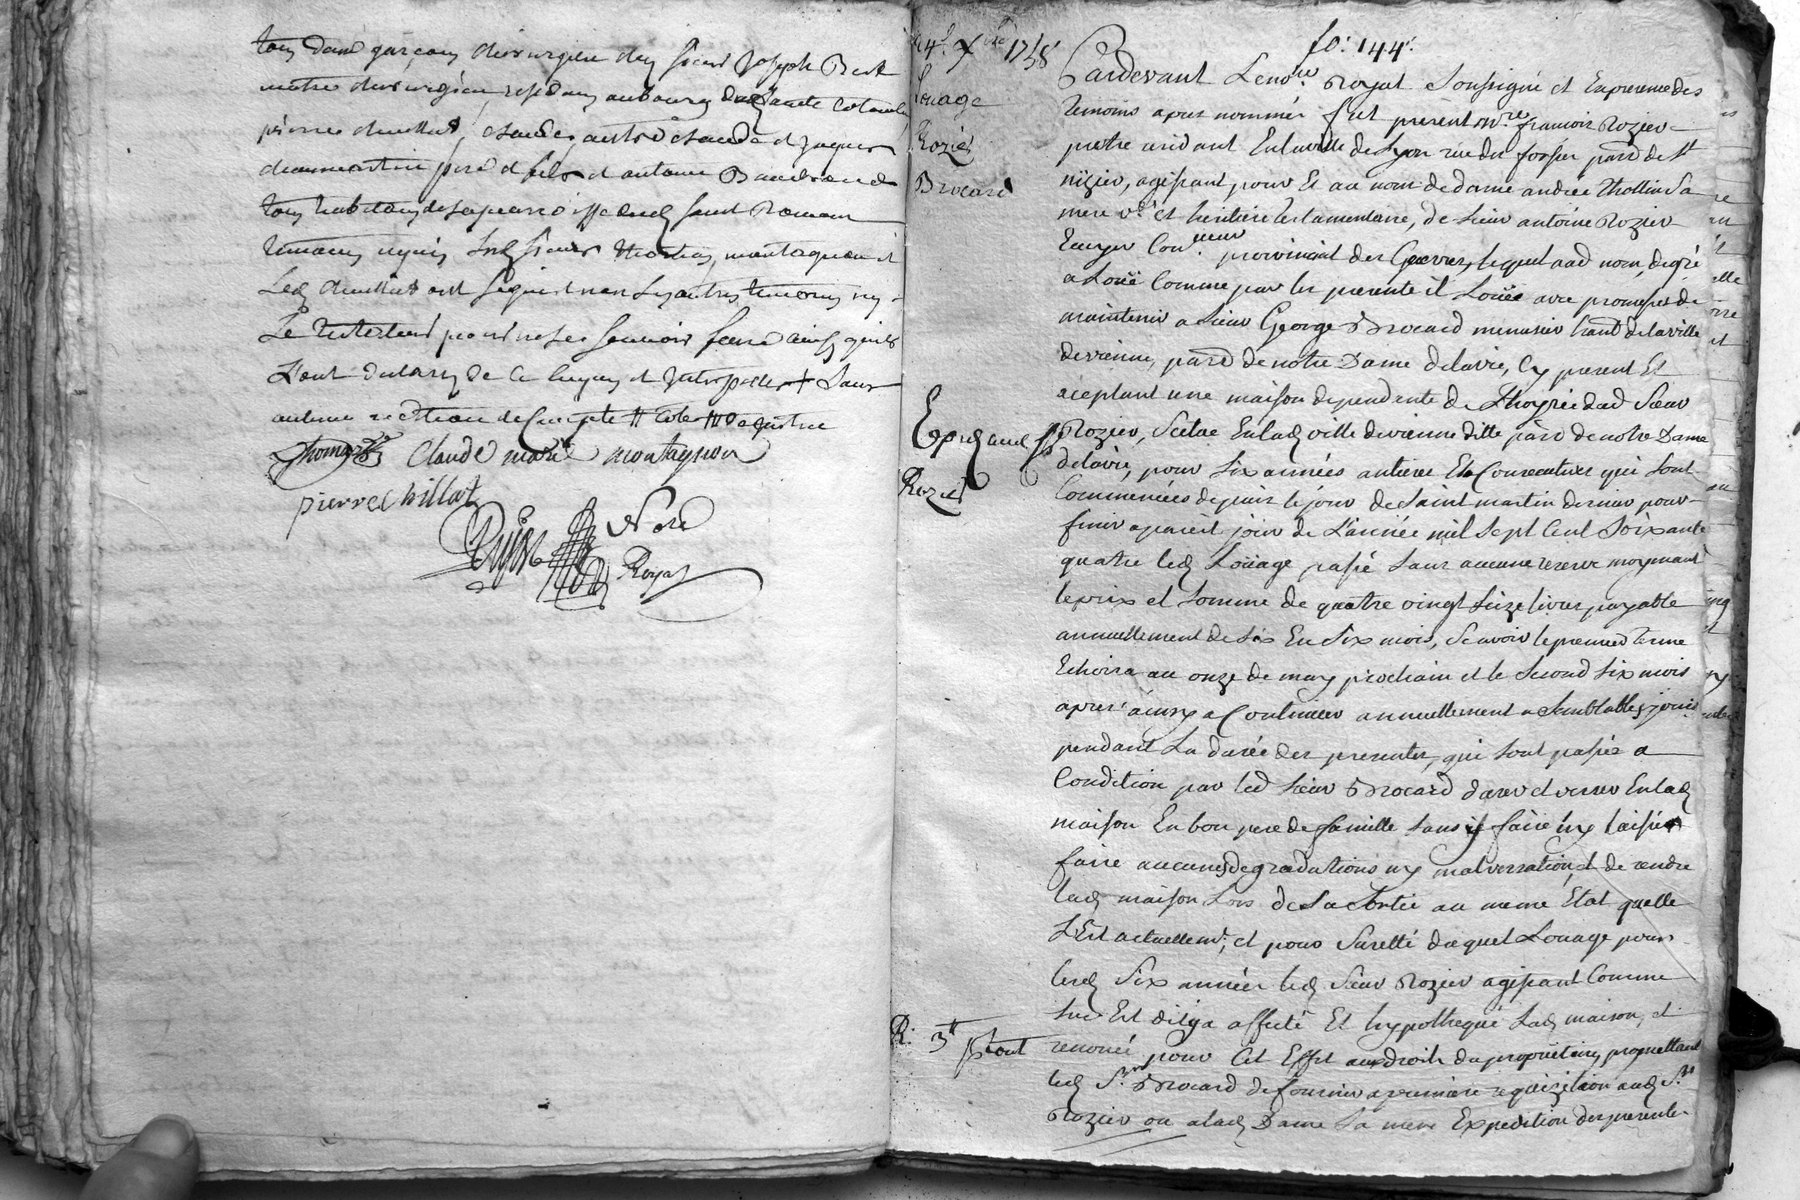 tous deux garçons chirurgiens du sieur Joseph Bert
maitre chirurgien residans au bourg de Sainte Colombe
pierre chuillat, Claude autre Claude et Jaques
pere et fils et antoine
tous habitans de la parroisse dud saint Romain
temoins requis led sieurs Thomas, montagnon et
Led chuillat ont signé et non les autres temoins ny
Le testateur pour ne le sçavoir faire ainsy quils
L'ont declaré de ce enquis et
Thomas Claude marie montagnon
pierre chillat
Nore
Royal
14e Xbre 1758
Louage
Rozier
Brocard
Exped aud Sr
Rozier
R. 3tt
fo. 144.
Pardevant Le nore Royal Soussigné et En presence des
temoins apres nommés fut present mre francois Rozier
pretre residant En la ville de Lyon rue du fossés parr de St
nizier, agissant pour Et au nom de dame andrée Thollin Sa
mere ve et heritiere testamentaire, de sieur antoine Rozier
Ecuyer Conr provincial des Guerres, lequel aud nom, de gré
a Loüé Comme par les presente il Loüe avec promesse de
maintenir a sieur George Brocard menusier hant de la ville
de vienne, parr de notre Dame de la vie, Cy present Et
aceptant une maison dependante de Lhoyrie dud Sieur
Rozier, Scitae En lad ville de vienne ditte parr de notre Dame
de la vie, pour Six années antieres Et Consecutives qui sont
Commencées depuis le jour de Saint martin dernier pour
finir a pareil jour de L'année mil Sept Cent Soixante
quatre led Loüage passé Sans aucune reserve moyenant
le prix et Somme de quatre vingt Seize livres payable
annuellement de Six En Six mois, Scavoir le premier terme
Echoira au onze de may prochain et le Second Six mois
apres ainsy a Continuer annuellement a Semblables jours
pendant La durée des presentes, qui sont passée a
Condition par led Sieur Brocard d'user et verser En lad
maison En bon pere de famille sans y faire ny laisser
faire aucunes degradations ny malversation, et de rendre
lad maison Lors de La Sortie au meme Etat quelle
L'Est actuellemt, et pour Suretté duquel Louage pour
lesd Six années led Sieur Rozier agissant Comme
sur Est dit a affecté Et hypothequé Lad maison, et
Brocard renoncé pour Cet Effet aux droits du propriètaire, promettant
led Sr. Brocard de fournir a premiere requizition aud Sr
Rozier ou a lad Dame Sa mere Expedition des presentes